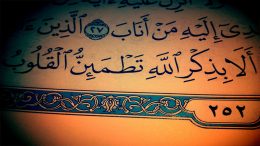 دِىٓ إِلَيْهِ مَنْ أَنَابَ ٢٧ ٱلَّذِينَ ءَا
أَلَا بِذِكْرِ ٱللَّهِ تَطْمَئِنُّ ٱلْقُلُوبُ
٢٥٢